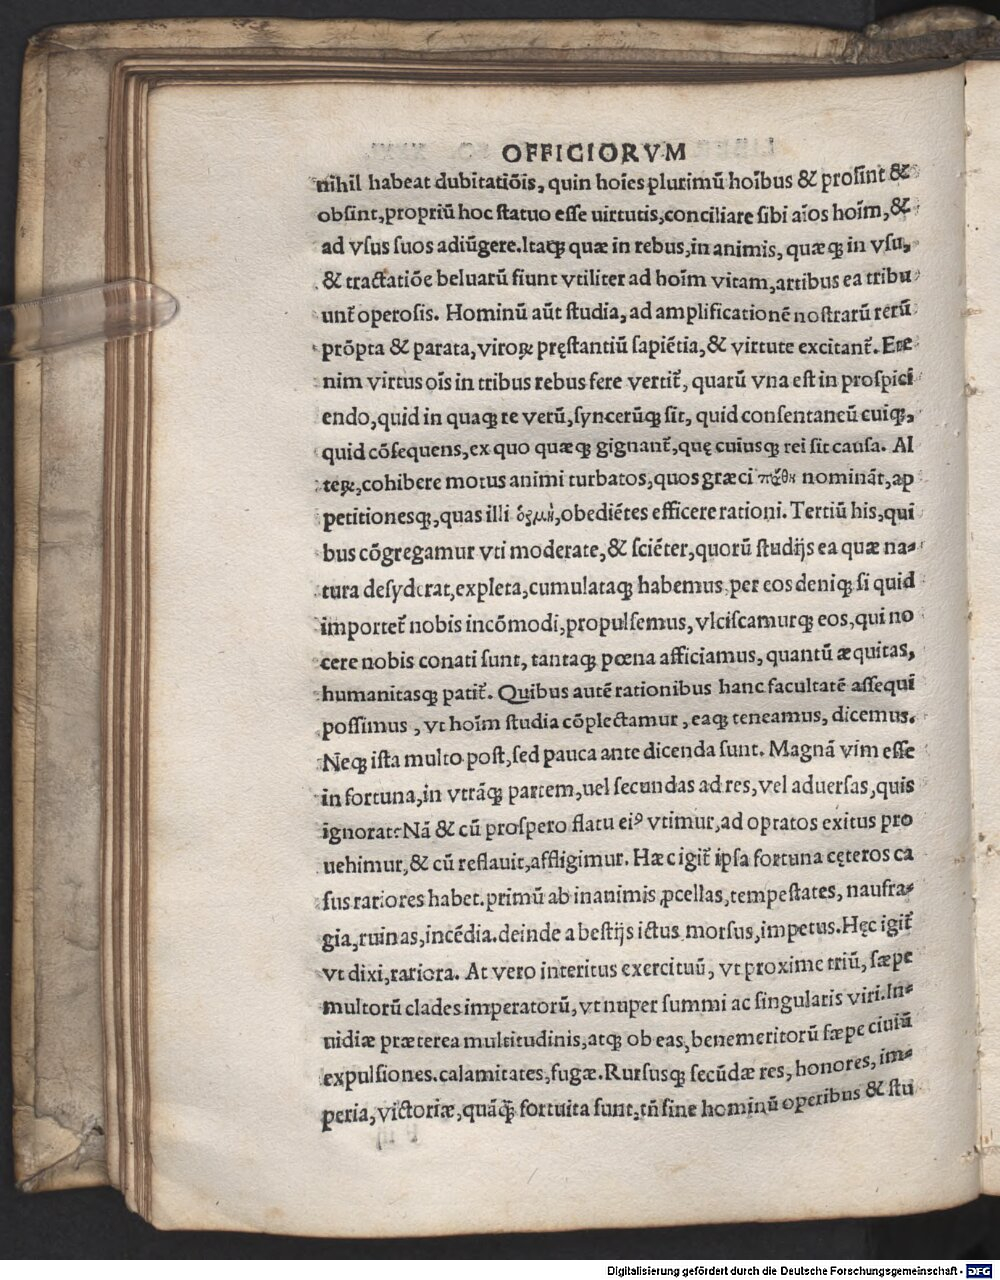 OFFICIORVM
nihil habeat dubitatiõis, quin hoĩes plurimũ hoĩbus & prosint &
obsint, propriũ hoc statuo esse uirtutis, conciliare sibi aĩos hoĩm, &
ad vsus suos adiũgere. Itaq; quæ in rebus, in animis, quæq; in vsu,
& tractatiõe beluarũ fiunt vtiliter ad hoĩm vitam, artibus ea tribu
unt̃ operosis. Hominũ aũt studia, ad amplificationẽ nostrarũ rerũ
prõpta & parata, viroꝝ pręstantiũ sapiẽtia, & virtute excitant̃. Ete
nim virtus oĩs in tribus rebus fere vertit̃, quarũ vna est in prospici
endo, quid in quaq; re verũ, syncerũq; sit, quid consentaneũ cuiq;,
quid cõsequens, ex quo quæq; gignant̃, quę cuiusq; rei sit causa. Al
teꝝ, cohibere motus animi turbatos, quos græci πάθη nominãt, ap
petitionesq;, quas illi ὁρμὴ, obediẽtes efficere rationi. Tertiũ his, qui
bus cõgregamur vti moderate, & sciẽter, quorũ studijs ea quæ na-
tura desyderat, expleta, cumulataq; habemus, per eos deniq; si quid
importet̃ nobis incõmodi, propulsemus, vlciscamurq; eos, qui no
cere nobis conati sunt, tantaq; pœna afficiamus, quantũ æquitas,
humanitasq; patit̃. Quibus autẽ rationibus hanc facultatẽ assequi
possimus, vt hoĩm studia cõplectamur, eaq; teneamus, dicemus.
Neq; ista multo post, sed pauca ante dicenda sunt. Magnã vim esse
in fortuna, in vtrãq; partem, uel secundas ad res, vel aduersas, quis
ignorat? Nã & cũ prospero flatu eiꝰ vtimur, ad optatos exitus pro
uehimur, & cũ reflauit, affligimur. Hæc igit̃ ipsa fortuna cęteros ca
sus rariores habet. primũ ab inanimis ꝓcellas, tempestates, naufra-
gia, ruinas, incẽdia. deinde a bestijs ictus morsus, impetus. Hęc igit̃
vt dixi, rariora. At vero interitus exercituũ, vt proxime triũ, sæpe
multorũ clades imperatorũ, vt nuper summi ac singularis viri. In-
uidiæ præterea multitudinis, atq; ob eas, benemeritorũ sæpe ciuiũ
expulsiones. calamitates, fugæ. Rursusq; secũdæ res, honores, im-
peria, victoriæ, quãq̃ fortuita sunt, tñ sine hominũ operibus & stu
Digitalisierung gefördert durch die Deutsche Forschungsgemeinschaft - DFG